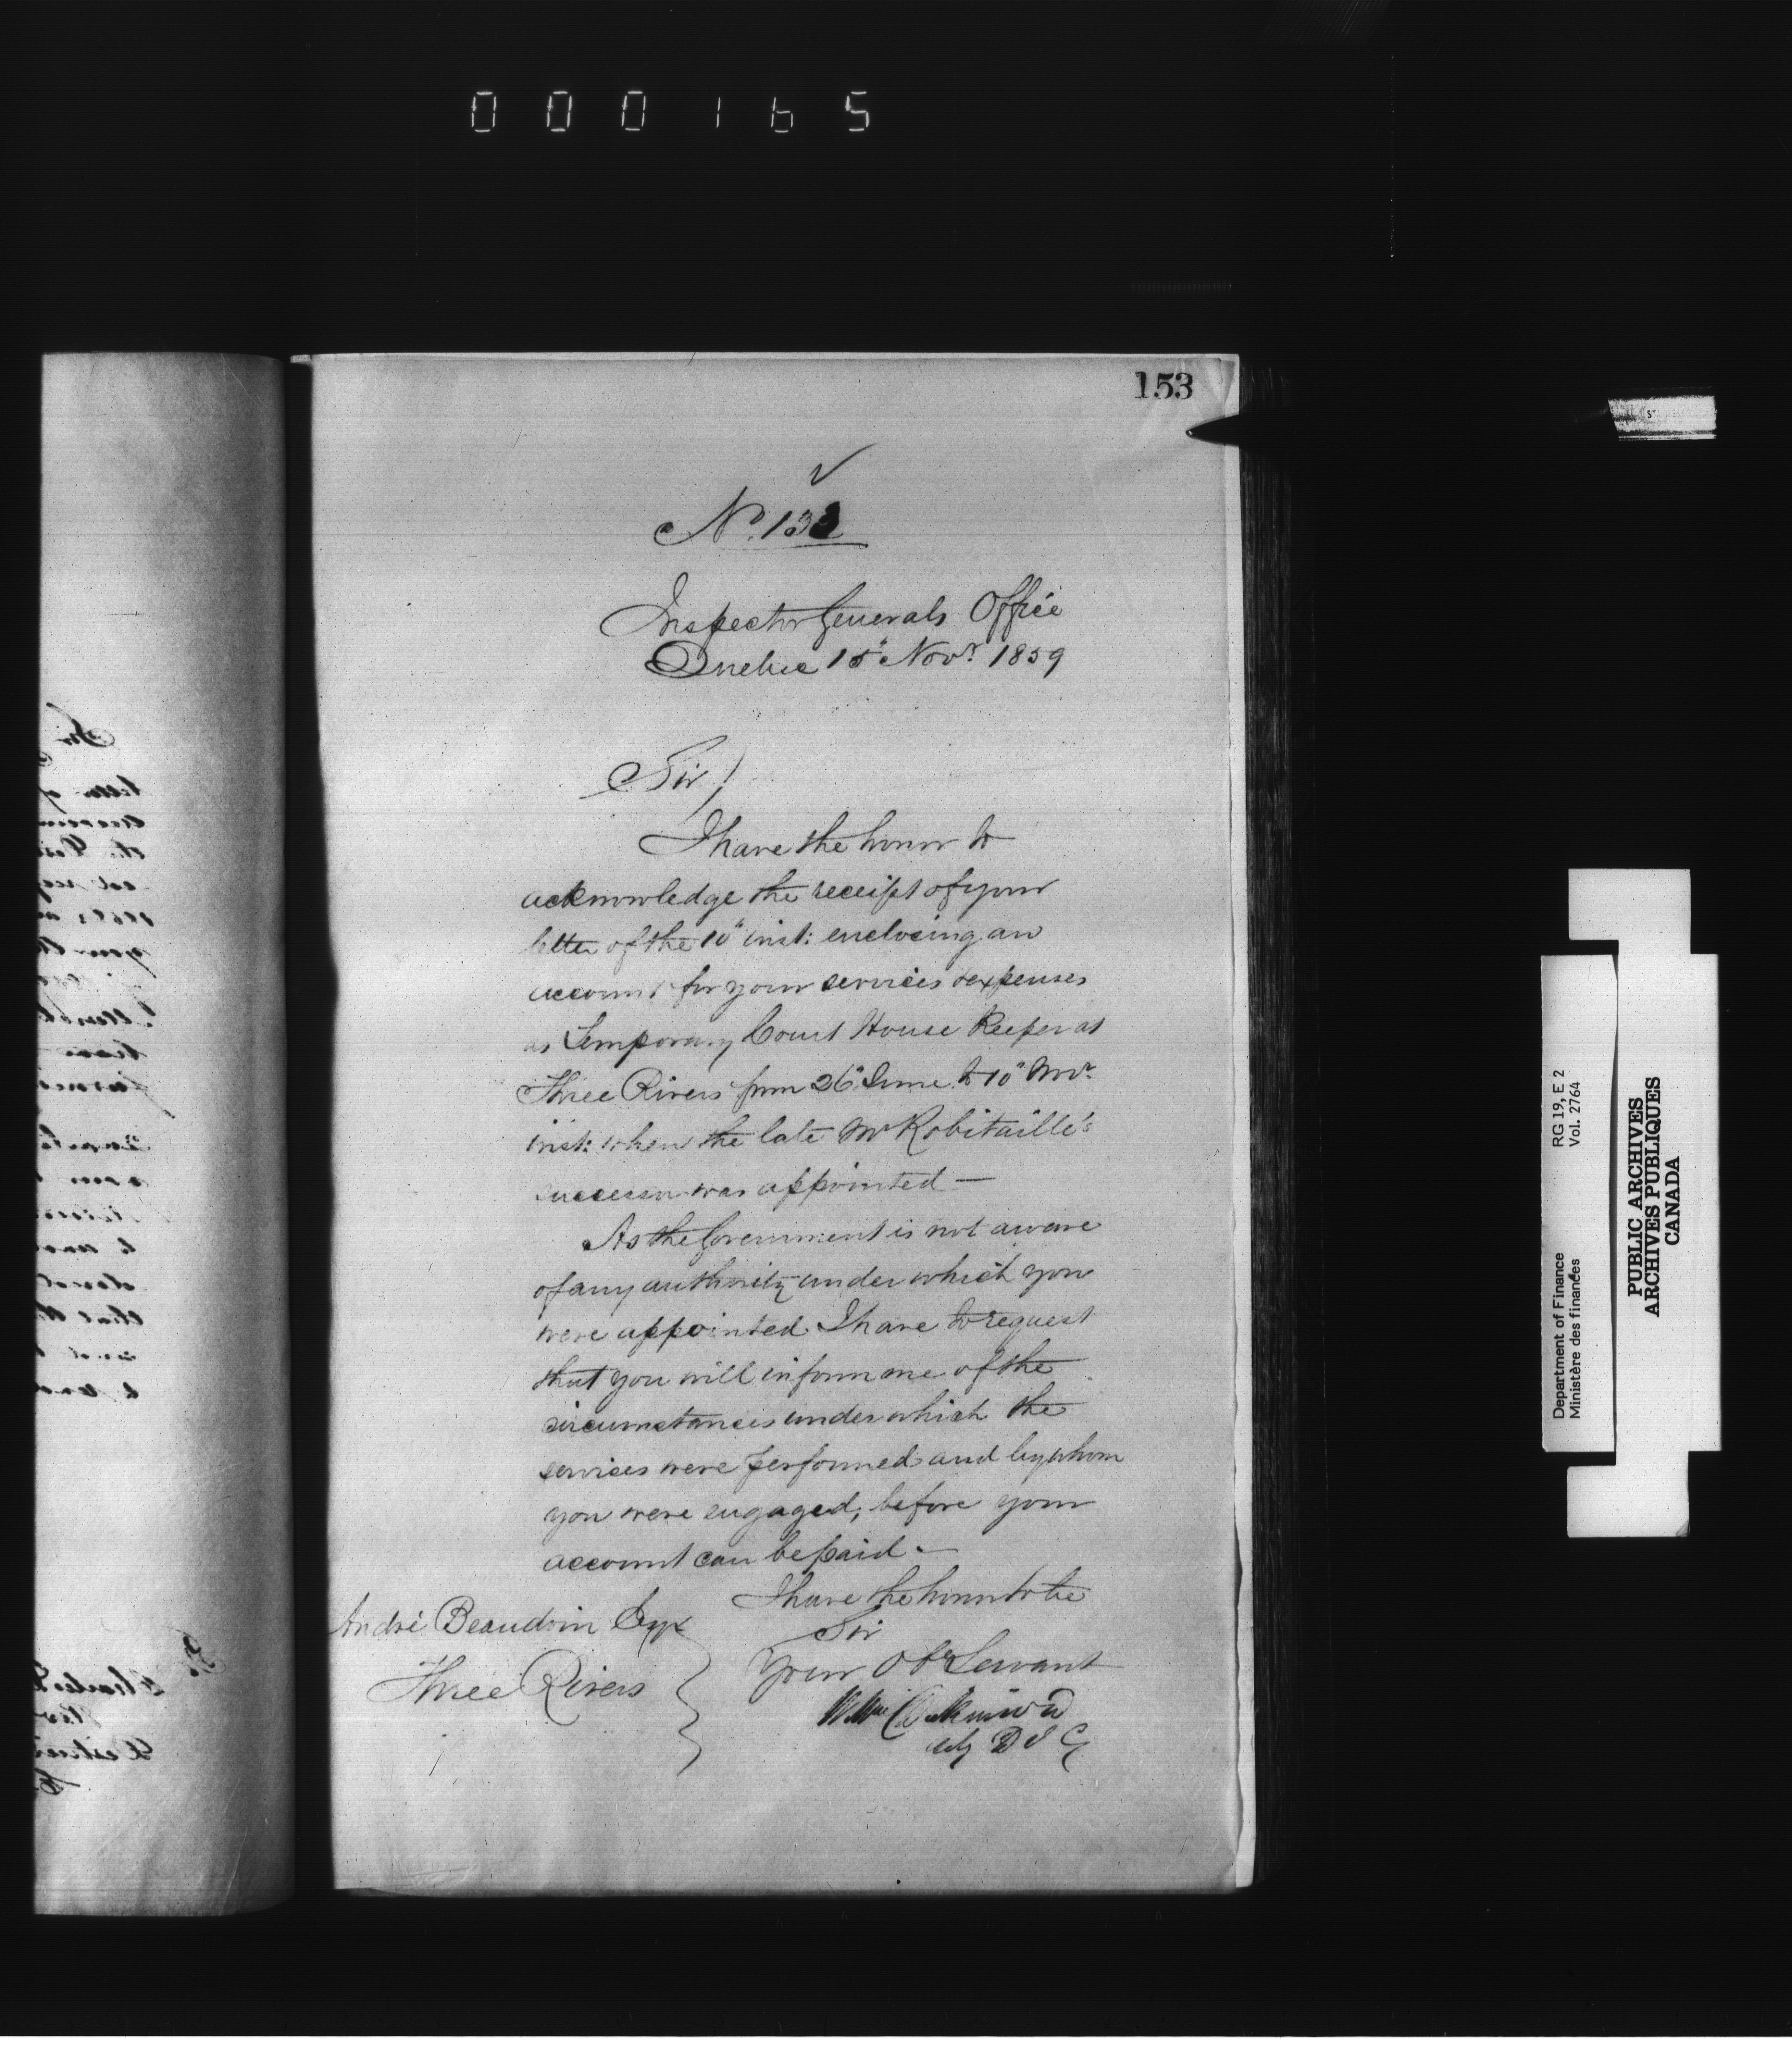 000165
153
Inspector Generals Office
Quebec 15" Novr. 1859
Sir /
I have the honor to
acknowledge the receipt of your
letter of the 10" inst: enclosing an
account for your services & expenses
as Temporary Court House Keeper at
Three Rivers from 26" June to 10" Novr.
inst: when the late Mr Robitaille's
successor was appointed —
As the Government is not aware
of any authority under which you
were appointed I have to request
that you will inform me of the
circumstances under which the
services were performed and by whom
you were engaged, before your
account can be paid. —
I have the honor to be
Sir
Your Obt Servant
Wm
D I G
André Beaudoin Esqr
Three Rivers
Department of Finance RG 19, E 2
Ministère des finances Vol. 2764
PUBLIC ARCHIVES
ARCHIVES PUBLIQUES
CANADA